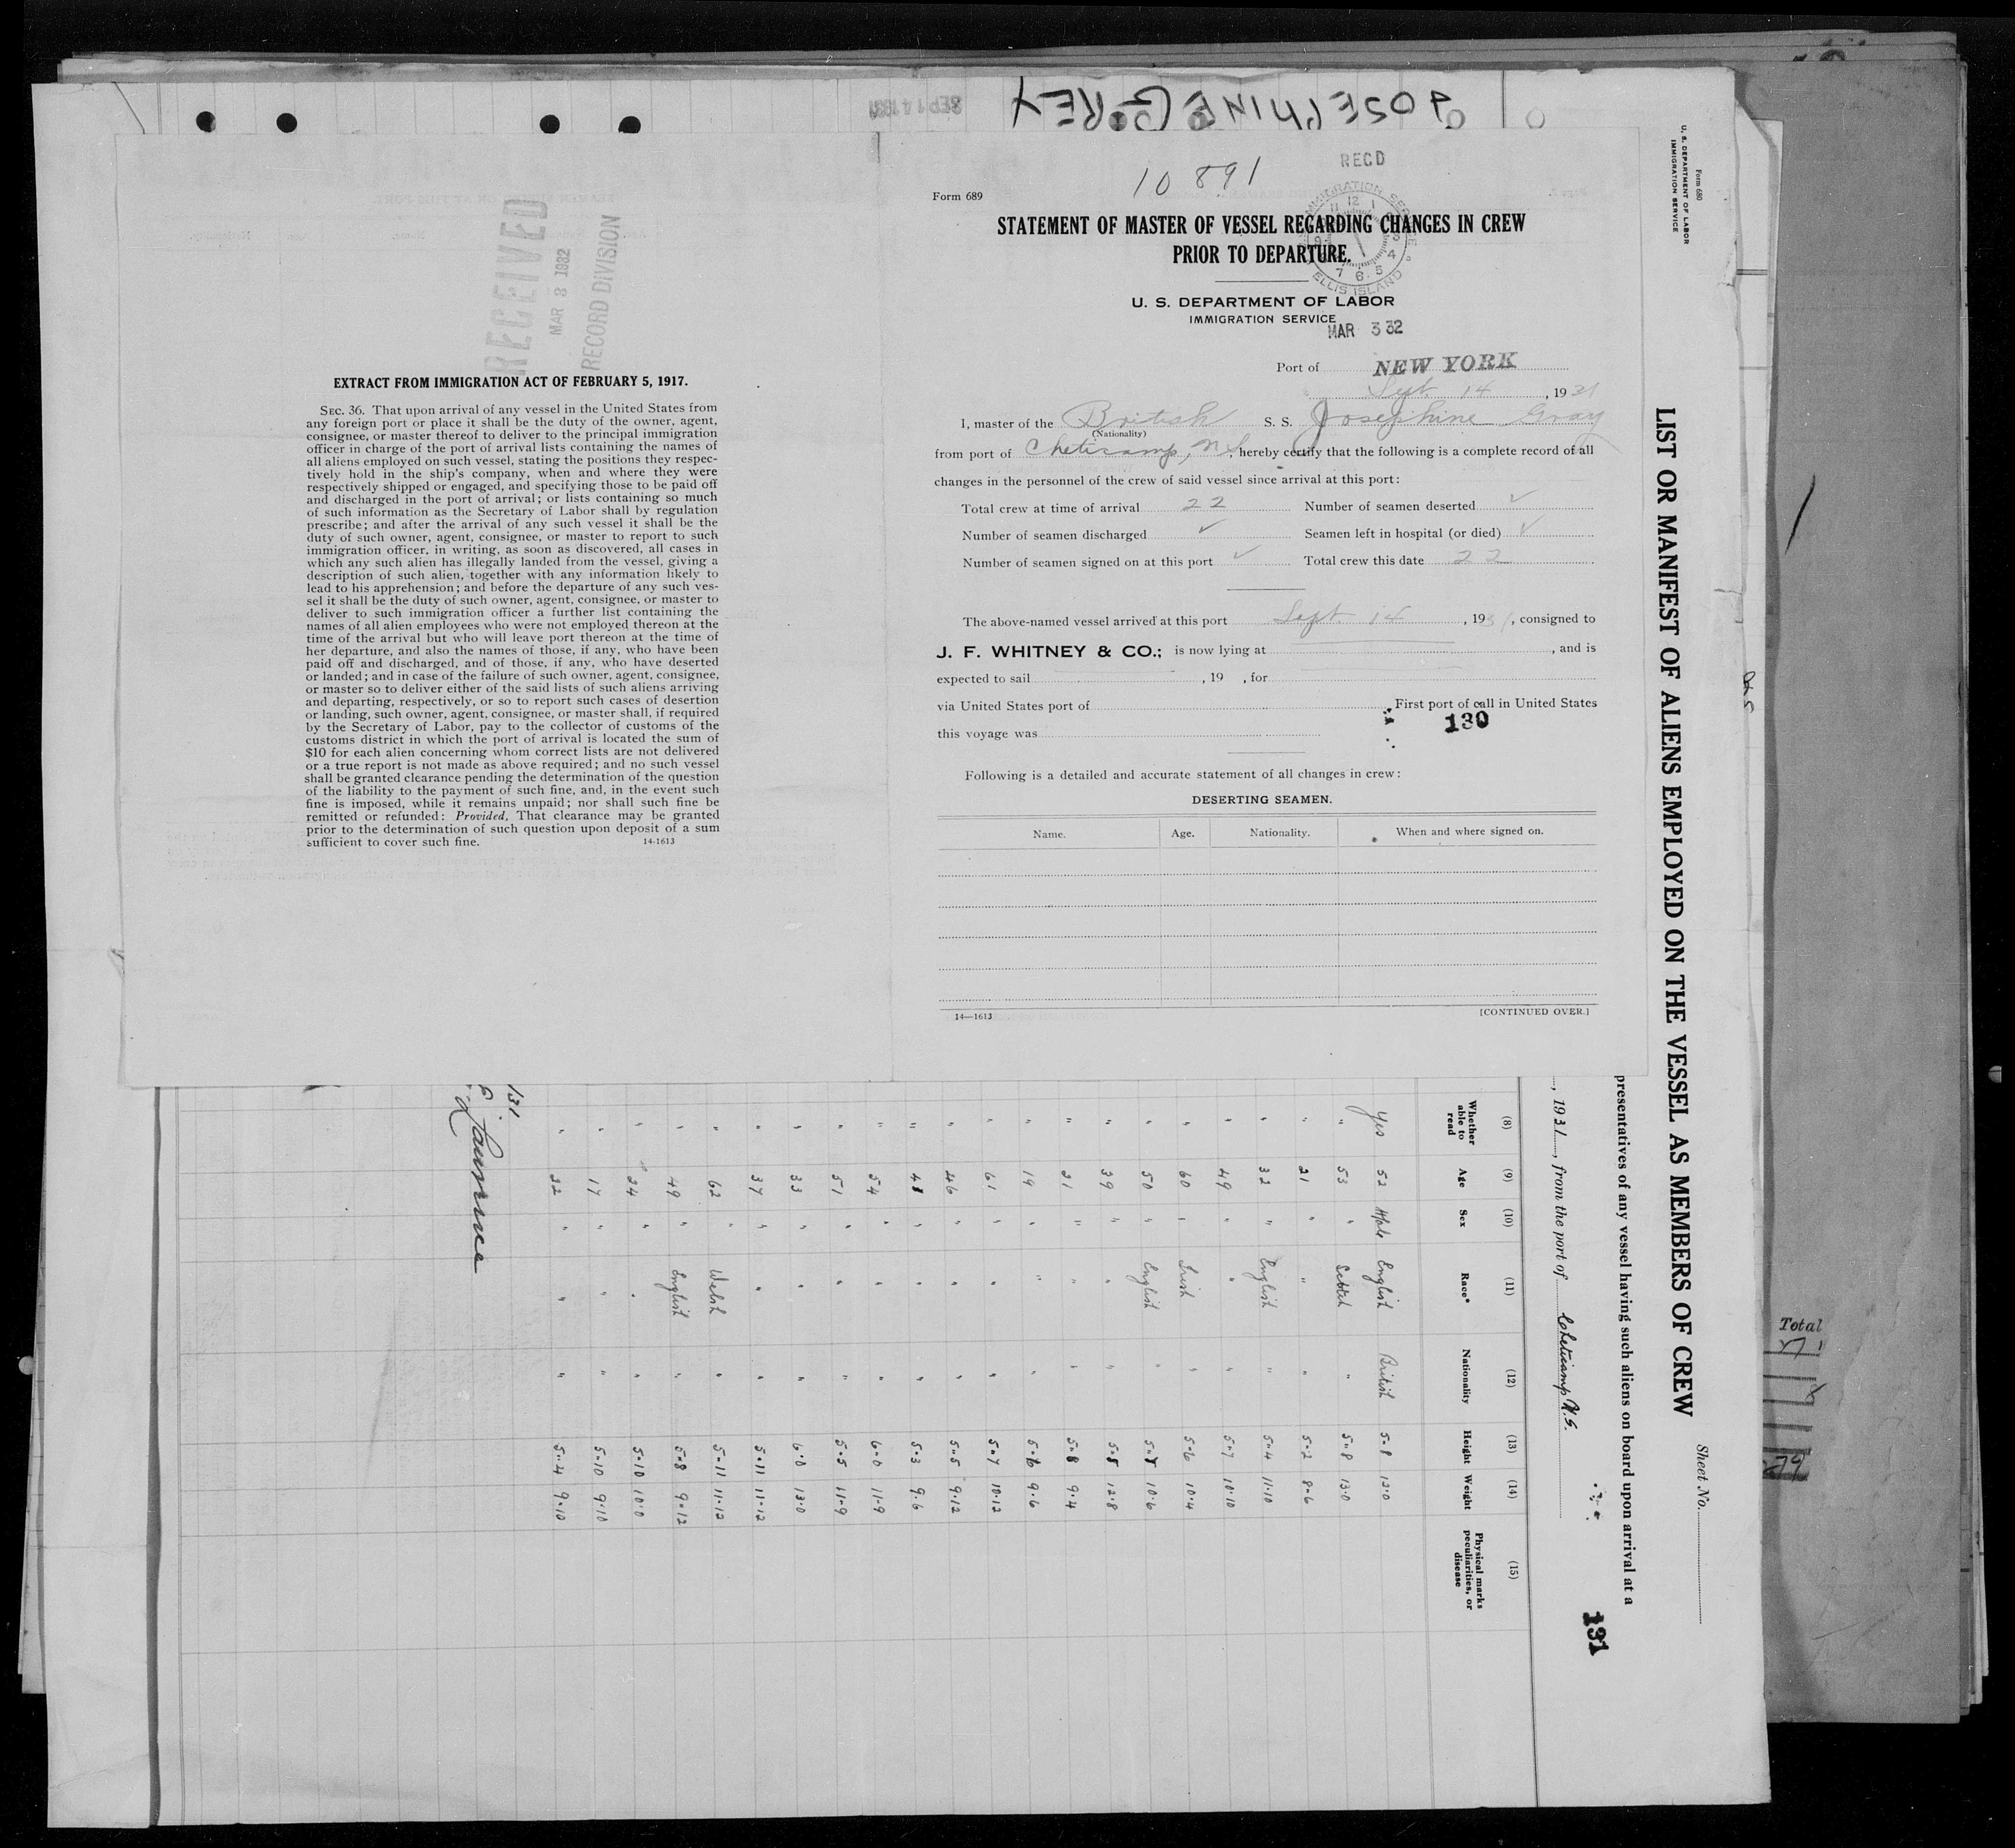 JOSEPHINE GREY
SEP 14 1931
RECEIVED
MAR 3 1932
RECORD DIVISION
EXTRACT FROM IMMIGRATION ACT OF FEBRUARY 5, 1917.
SEC. 36. That upon arrival of any vessel in the United States from
any foreign port or place it shall be the duty of the owner, agent,
consignee, or master thereof to deliver to the principal immigration
officer in charge of the port of arrival lists containing the names of
all aliens employed on such vessel, stating the positions they respec-
tively hold in the ship's company, when and where they were
respectively shipped or engaged, and specifying those to be paid off
and discharged in the port of arrival; or lists containing so much
of such information as the Secretary of Labor shall by regulation
prescribe; and after the arrival of any such vessel it shall be the
duty of such owner, agent, consignee, or master to report to such
immigration officer, in writing, as soon as discovered, all cases in
which any such alien has illegally landed from the vessel, giving a
description of such alien, together with any information likely to
lead to his apprehension; and before the departure of any such ves-
sel it shall be the duty of such owner, agent, consignee, or master to
deliver to such immigration officer a further list containing the
names of all alien employees who were not employed thereon at the
time of the arrival but who will leave port thereon at the time of
her departure, and also the names of those, if any, who have been
paid off and discharged, and of those, if any, who have deserted
or landed; and in case of the failure of such owner, agent, consignee,
or master so to deliver either of the said lists of such aliens arriving
and departing, respectively, or so to report such cases of desertion
or landing, such owner, agent, consignee, or master shall, if required
by the Secretary of Labor, pay to the collector of customs of the
customs district in which the port of arrival is located the sum of
$10 for each alien concerning whom correct lists are not delivered
or a true report is not made as above required; and no such vessel
shall be granted clearance pending the determination of the question
of the liability to the payment of such fine, and, in the event such
fine is imposed, while it remains unpaid; nor shall such fine be
remitted or refunded: Provided, That clearance may be granted
prior to the determination of such question upon deposit of a sum
sufficient to cover such fine. 14-1613
10891
RECD
Form 689
STATEMENT OF MASTER OF VESSEL REGARDING CHANGES IN CREW
PRIOR TO DEPARTURE.
IMMIGRATION SERVICE
ELLIS ISLAND
U. S. DEPARTMENT OF LABOR
IMMIGRATION SERVICE
MAR 3 32
Port of NEW YORK
Sept. 14, 1931
I, master of the British S. S. Josephine Gray
(Nationality)
from port of Cheticamp, N.S., hereby certify that the following is a complete record of all
changes in the personnel of the crew of said vessel since arrival at this port:
Total crew at time of arrival 22 Number of seamen deserted ✓
Number of seamen discharged ✓ Seamen left in hospital (or died) ✓
Number of seamen signed on at this port ✓ Total crew this date 22
The above-named vessel arrived at this port Sept. 14, 1931, consigned to
J. F. WHITNEY & CO.; is now lying at , and is
expected to sail , 19 , for
via United States port of . First port of call in United States
this voyage was 130
Following is a detailed and accurate statement of all changes in crew:
DESERTING SEAMEN.
Name. Age. Nationality. When and where signed on.
14—1613 [CONTINUED OVER.]
Form 680
U. S. DEPARTMENT OF LABOR
IMMIGRATION SERVICE
LIST OR MANIFEST OF ALIENS EMPLOYED ON THE VESSEL AS MEMBERS OF CREW
Sheet No.
presentatives of any vessel having such aliens on board upon arrival at a
, 1931, from the port of Cheticamp N.S.
131
(8) (9) (10) (11) (12) (13) (14) (15)
Whether able to read Age Sex Race* Nationality Height Weight Physical marks peculiarities, or disease
Yes 52 Male English British 5-8 12.0
" 53 " Scotch " 5-8 13.0
" 21 " " " 5-2 8-6
" 32 " English " 5-4 11.10
" 49 " " " 5-7 10.10
" 60 " Irish " 5-6 10.4
" 50 " English " 5-8 10.6
" 39 " " " 5-8 12.8
" 21 " " " 5-8 9.4
" 19 " " " 5-6 9.6
" 61 " " " 5-7 10.12
" 46 " " " 5-5 9.12
" 48 " " " 5-3 9.6
" 54 " " " 6-0 11-9
" 51 " " " 5-5 11-9
" 33 " " " 6-0 13.0
" 37 " " " 5-11 11-12
" 62 " Welsh " 5-11 11-12
" 49 " English " 5-8 9-12
" 24 " " " 5-10 10.0
" 17 " " " 5-10 9.10
" 22 " " " 5-4 9-10
131
Total